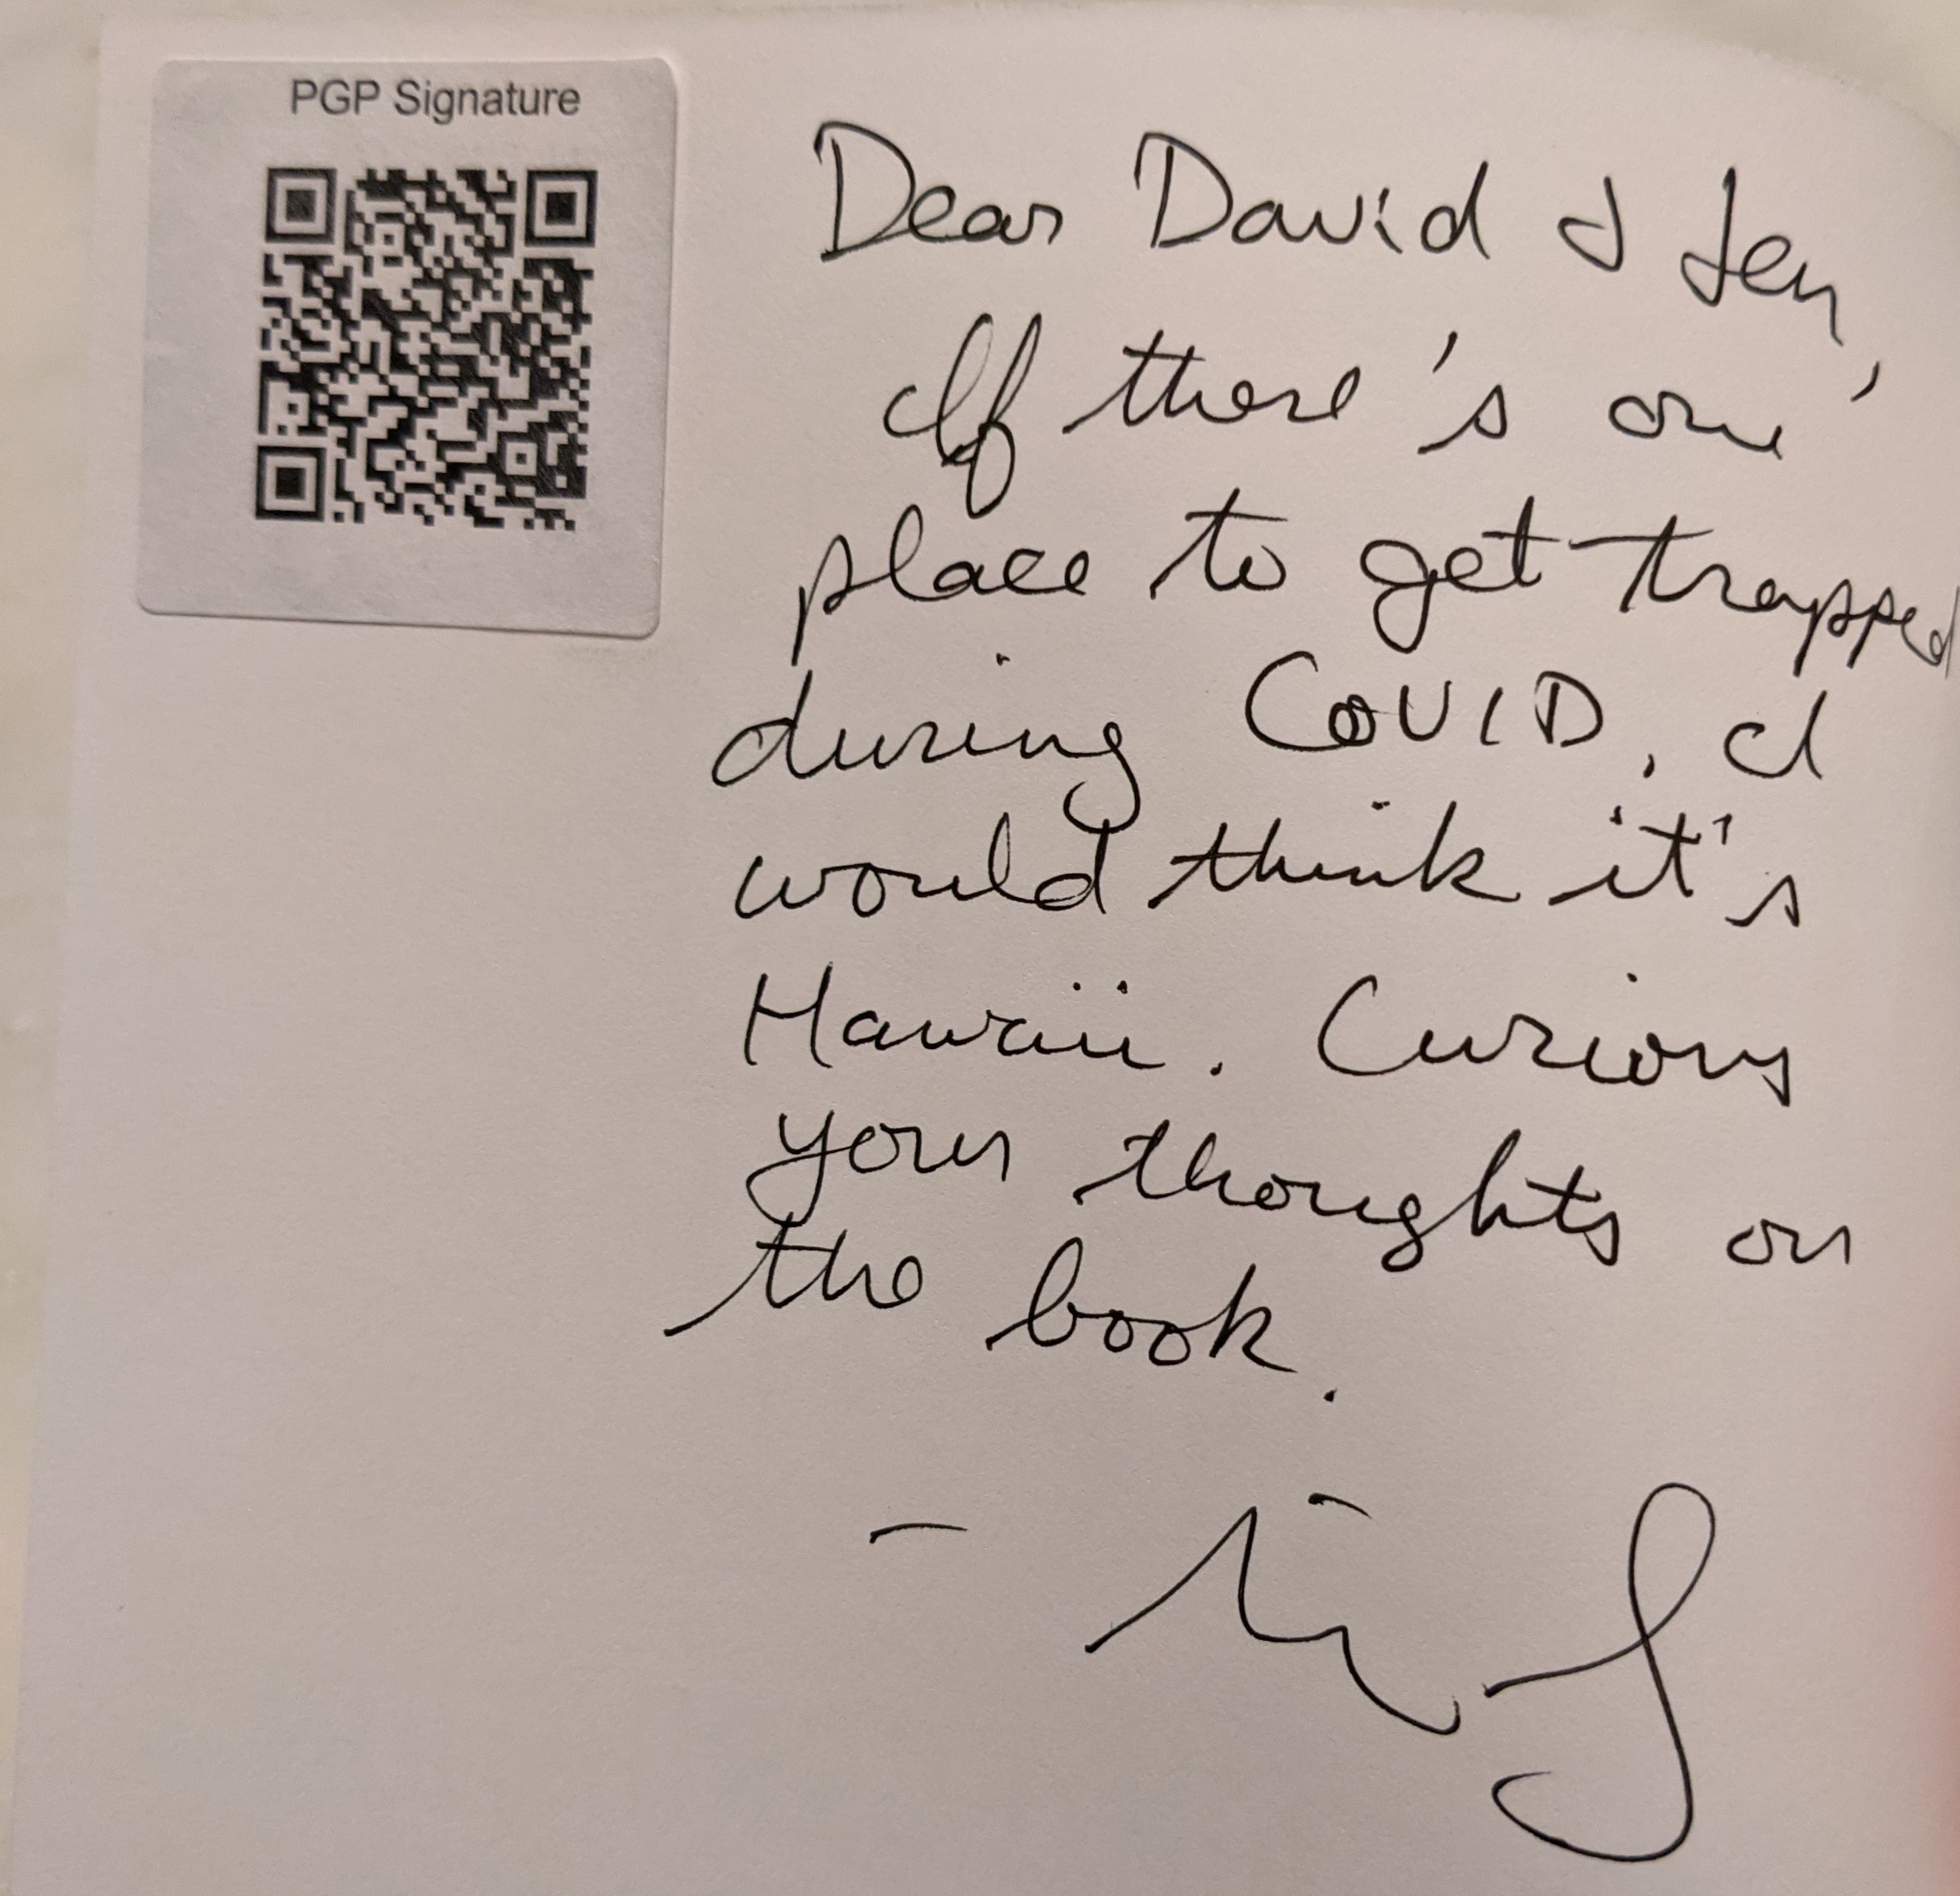 PGP Signature
Dear David & Jen,
If there's one
place to get trapped
during COVID, I
would think it's
Hawaii. Curious
your thoughts on
the book.